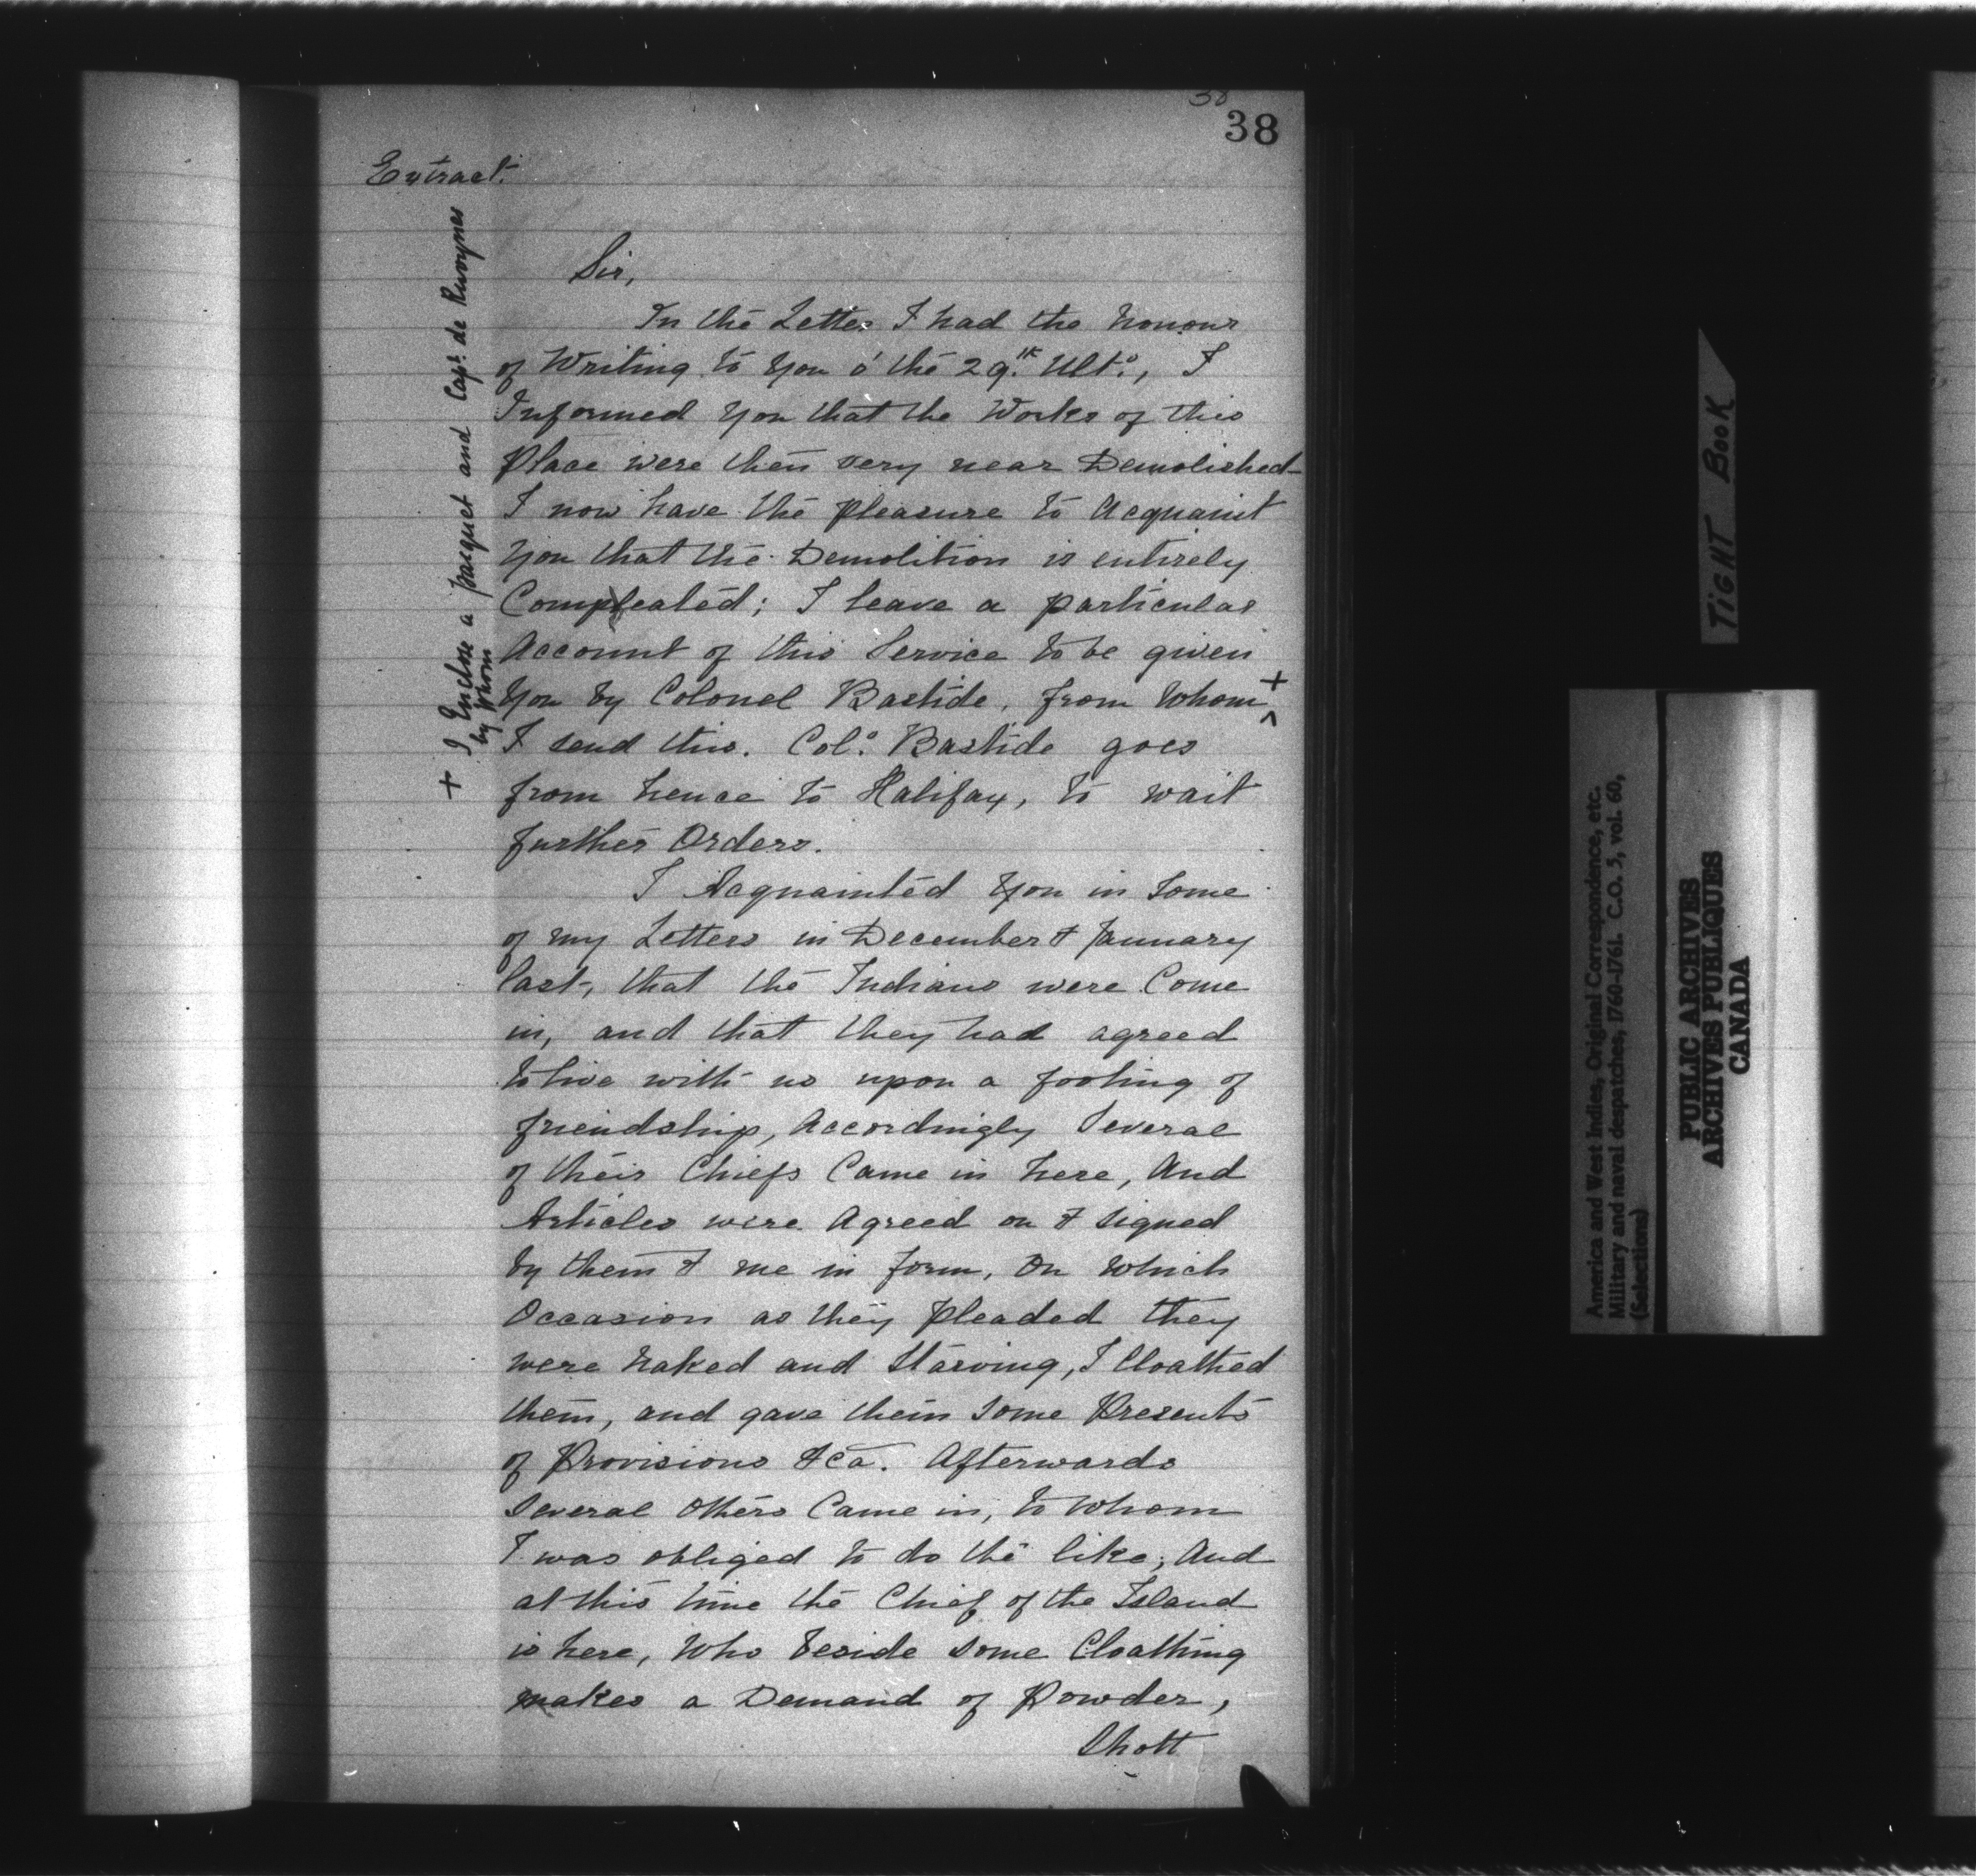 38
38
Extract.
Sir,
In the Letter I had the honour
of Writing to You o' the 29.th Ult.o, I
Informed You that the Works of this
Place were then very near Demolished
I now have the pleasure to Acquaint
You that the Demolition is entirely
Compleated; I leave a particular
Account of this Service to be given
You by Colonel Bastide, from Whom +
I send this. Col.o Bastide goes
from hence to Halifax, to wait
further Orders.
I Acquainted You in Some
of my Letters in December & January
last, that the Indians were Come
in, and that they had agreed
to live with us upon a footing of
friendship, Accordingly Several
of their Chiefs Came in here, And
Articles were Agreed on & signed
by them & me in form, On Which
Occasion as they pleaded they
were Naked and Starving, I Cloathed
them, and gave them Some Presents
of Provisions &ca. Afterwards
Several Others Came in, to Whom
I was obliged to do the like; And
at this time the Chief of the Island
is here, Who beside some Cloathing
makes a Demand of Powder,
Shott
+ I Enclose a pacquet and Capt. de
by Whom
TIGHT BOOK
America and West Indies, Original Correspondence, etc.
Military and naval despatches, 1760-1761. C.O. 5, vol. 60,
(Selections)
PUBLIC ARCHIVES
ARCHIVES PUBLIQUES
CANADA